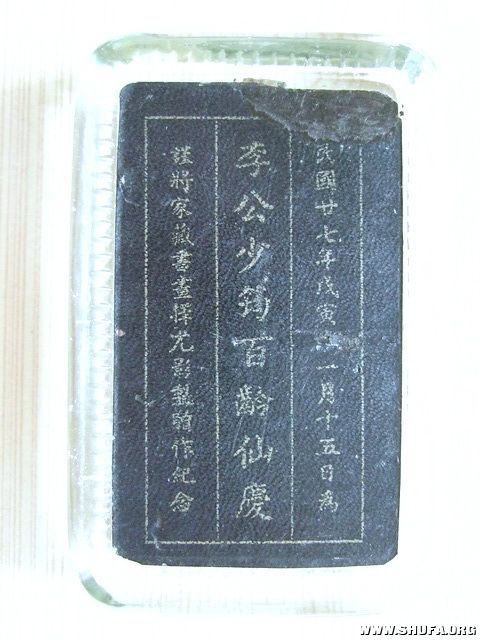 民國廿七年戊寅一月十五日為
李公少百齡仙慶
謹將家藏書畫擇尤影製贈作紀念
WWW.SHUFA.ORG